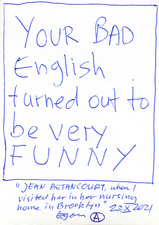 YOUR BAD
English
turned out to
be very
FUNNY
"JEAN BETANCOURT, when I
visited her in her nursing
home in Brooklyn" 22 X 2021
Egon A